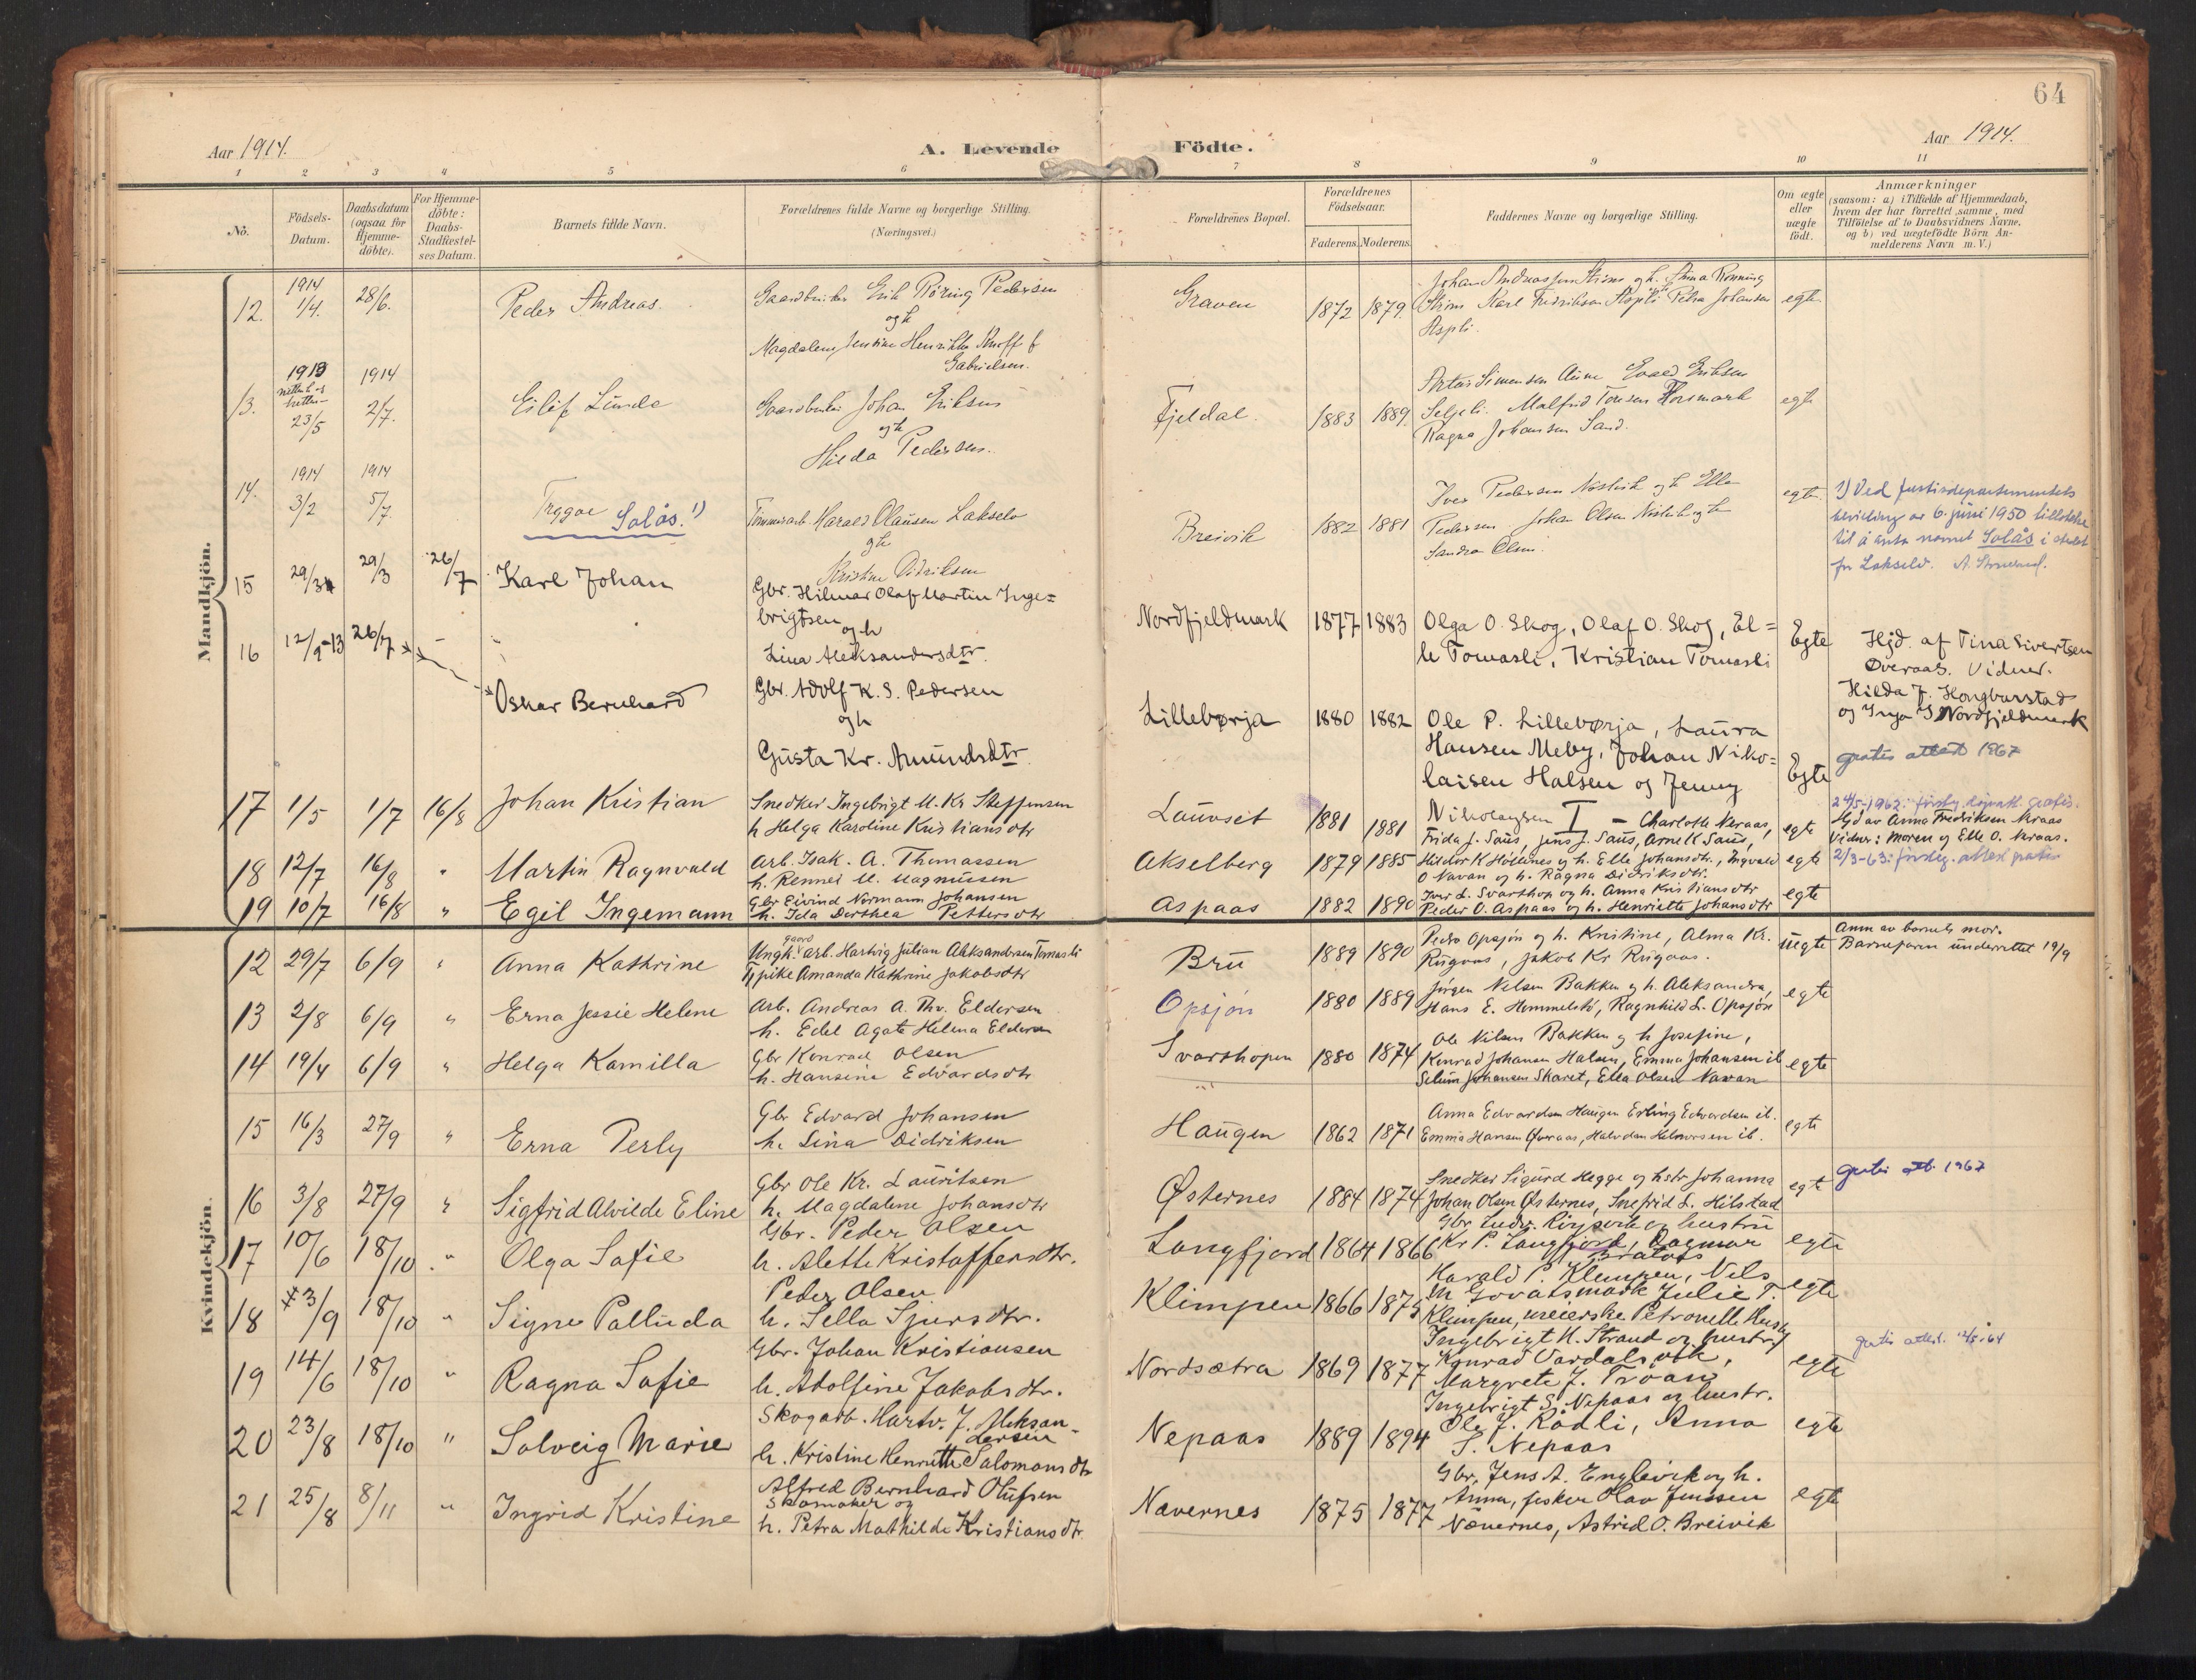 64
Aar 1914.
A. Levende Födte.
Aar 1914.
1 2 3 4 5 6 7 8 9 10 11
No.
Födsels-
Datum.
Daabsdatum
(ogsaa for
Hjemme-
döbte).
For Hjemme-
döbte:
Daabs-
Stadfæstel-
ses Datum.
Barnets fulde Navn.
Forældrenes fulde Navne og borgerlige Stilling.
(Næringsvei.)
Forældrenes Bopæl.
Forældrenes
Födselsaar.
Faderens. Moderens.
Faddernes Navne og borgerlige Stilling.
Om ægte
eller
uægte
födt.
Anmærkninger
(saasom: a) i Tilfælde af Hjemmedaab,
hvem der har forrettet samme, med
Tilföielse af to Daabsvidners Navne,
og b) ved uægtefödte Börn An-
melderens Navn m. V.)
Mandkjön.
12. 1914 1/4. 28/6. Peder Andreas.
Gaardbruker Erik Röring Pedersen
og h
Magdalena Jensine Henrikke f
Gabrielsen.
Graven 1872 1879.
Johan Andreassen Ströms og h. Stina Rönning
Ström Karl Fredriksen Aspli Petra Johansen
Aspli.
egte
13. 1913 23/5 1914 2/7. Eilif Linde
Gaardbruker Johan Eriksen
og h
Hilda Pedersen.
Fjeldal. 1883 1889.
Artur Simensen Aune Evald Eriksen
Selgeli. Malfrid Tonesen Horsmark
Ragna Johansen Sand.
egte
14. 1914 3/2 1914 5/7. Tryggve Solås. 1)
Tömmerarb. Harald Olausen Lakselv
og h
Kristine Didriksen
Breivik 1882 1881
Iver Pedersen Nöstvik og h Ella
Pedersen Johan Olsen Nöstvik og h
Sandra Olsen.
egte
1) Ved Justisdepartementets
bevilling av 6. juni 1950 tillatelse
til å anta navnet Solås i stedet
for Lakselv. A.
15 29/3 29/3 26/7 Karl Johan
Gbr. Hilmar Olaf Martin Inge=
brigtsen og h
Lina Aleksandersdtr.
Nordfjeldmark 1877 1883
Olga O. Skog, Olaf O. Skog, El=
le Tomasli, Kristian Tomasli
Egte
Hjd. af Tina Sivertsen
Överaas. Vidner.
Hilda J. Hongbarstad
og Inga J Nordfjeldmark
16 12/9-13 26/7 - Oskar Bernhard
Gbr. Adolf K. S. Pedersen
og h
Gusta Kr. Amundsdtr.
Lillebørja 1880 1882
Ole P. Lillebørja, Laura
Hansen Meby, Johan Niko=
laisen Halsen og Jenny
Nikolaysen
Egte
gratis attest 1967
17 1/5 1/7 16/8 Johan Kristian
Snedker Ingebrigt M. Kr Steffensen
h Helga Karoline Kristiansdtr
Lauvset 1881 1881
I - Charlotte Neraas,
Frida J. Saus, Jens J. Saus, Arne K Saus,
egte
24/5-1962: gratis.
Hjd av Anna Fredriksen Nraas
Vidner: moren og Elle O. Neraas.
18 12/7 16/8 " Martin Ragnvald
Arb. Isak. A. Thomassen
h. Rennei M. Magnussen
Akselberg 1879 1885
Hildor K Höllenes og h. Elle Johansdtr., Ingvald
O Navan og h. Ragna Didriksdtr.
egte
2/3-63: attest gratis
19 10/7 16/8 " Egil Ingemann
Gbr Eivind Normann Johansen
h. Ida Dorthea Pettersdtr
Aspaas 1882 1890
Iver L. Svarthop og h. Anna Kristiansdtr
Peder O. Aspaas og h. Henriette Johansdtr
egte
Kvindekjön.
12 29/7 6/9 " Anna Kathrine
Ungk. gaard arb. Hartvig Julian Aleksandersen Tomasli
Tjpike Amanda Kathrine Jakobsdtr
Bru 1889 1890
Pedro Opsjön og h. Kristine, Alma Kr.
Rugaas, Jakob Kr Rugaas.
uegte
Anm av barnets mor.
Barnefaren underrettet 19/9
13 2/8 6/9 " Erna Jessie Helene
Arb. Andreas A. Thv. Eldersen
h. Edel Agate Helena Eldersen
Opsjön 1880 1889
Jörgen Nilsen Bakken og h. Aleksandra,
Hans E. Hommelstö, Ragnhild L. Opsjön
egte
14 19/4 6/9 " Helga Kamilla
Gbr Konrad Olsen
h. Hansine Edvardsdtr
Svarthopen 1880 1874
Ole Nilsen Bakken og h Josefine,
Konrad Johansen Halsen, Emma Johansen ib
Selum Johansen Skaret, Ella Olsen Navan
egte
15 16/3 27/9 " Erna Perly
Gbr Edvard Johansen
h. Lina Didriksen
Haugen 1862 1871
Anna Edvardsen Haugen Erling Edvardsen ib.
Emma Hansen Överaas, Halvdan Helmersen ib.
egte
16 3/8 27/9 " Sigfrid Alvilde Eline
Gbr Ole Kr. Lauritsen
h. Magdalene Johansdtr
Østernes 1884 1874
Snedker Sigurd Hegge og hstr Johanna
Johan Olsen Østernes, Snefrid L. Hilstad
egte
gratis att. 1967
17 10/6 18/10 " Olga Sofie
Gbr. Peder Olsen
h. Alette Kristoffersdtr.
Langfjord 1864 1866
Gbr Ludv. og hustru
Kr P. Langfjord, Dagmar
Bråtaas
egte
18 3/9 18/10 " Signe Palluda
Peder Olsen
h. Sella Sjursdtr.
Klimpen 1866 1875
Harald P. Klempen, Nils
M Govatsmark Julie T.
Klimpen, meierske Petronelle
egte
19 14/6 18/10 " Ragna Sofie
Gbr. Johan Kristiansen
h. Adolfine Jakobsdtr.
Nordsætra 1869 1877
Ingebrigt H. Strand og hustru
Konrad Vardalsvik,
Margrete J. Troan
egte
gratis attest. 12/5-64
20 23/8 18/10 " Solveig Marie
Skogarb. Hartv. J. Aleksan-
dersen
h. Kristine Henriette Salomonsdtr
Nepaas 1889 1894
Ingebrigt S. Nepaas og hustr.
Ole J. Rödli, Anna
S. Nepaas
egte
21 25/8 8/11 " Ingrid Kristine
Alfred Bernhard Olufsen
Skomaker og
h. Petra Mathilde Kristiansdtr.
Navernes 1875 1877
Gbr. Jens A. Englivik og h.
Anna, fisker Olav Jenssen
Nævernes, Astrid O. Breivik
egte